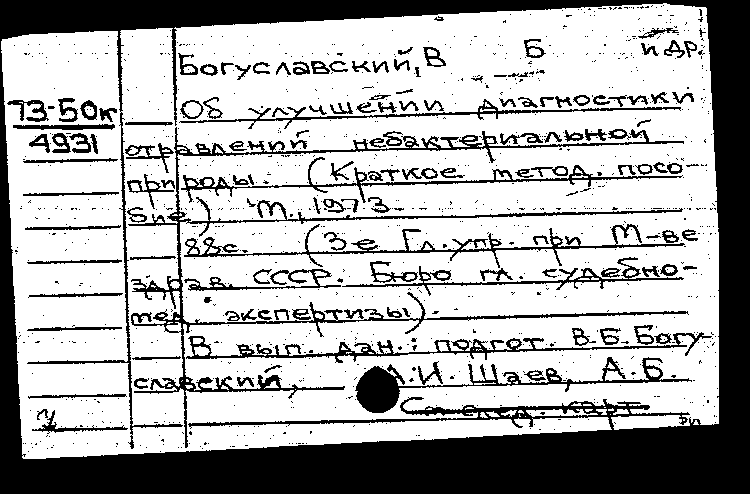 Богуславский, В Б и др.
73-50к
4931
Об улучшении диагностики
отравлений небактериальной
природы. (Краткое метод. посо-
бие) М., 1973.
88с. (3-е Гл. упр. при М-ве
здрав. СССР. Бюро гл. судебно-
мед. экспертизы).
В вып. дан.: подгот. В.Б. Богу-
славский, А.И. Шаев, А.Б.
См след. карт